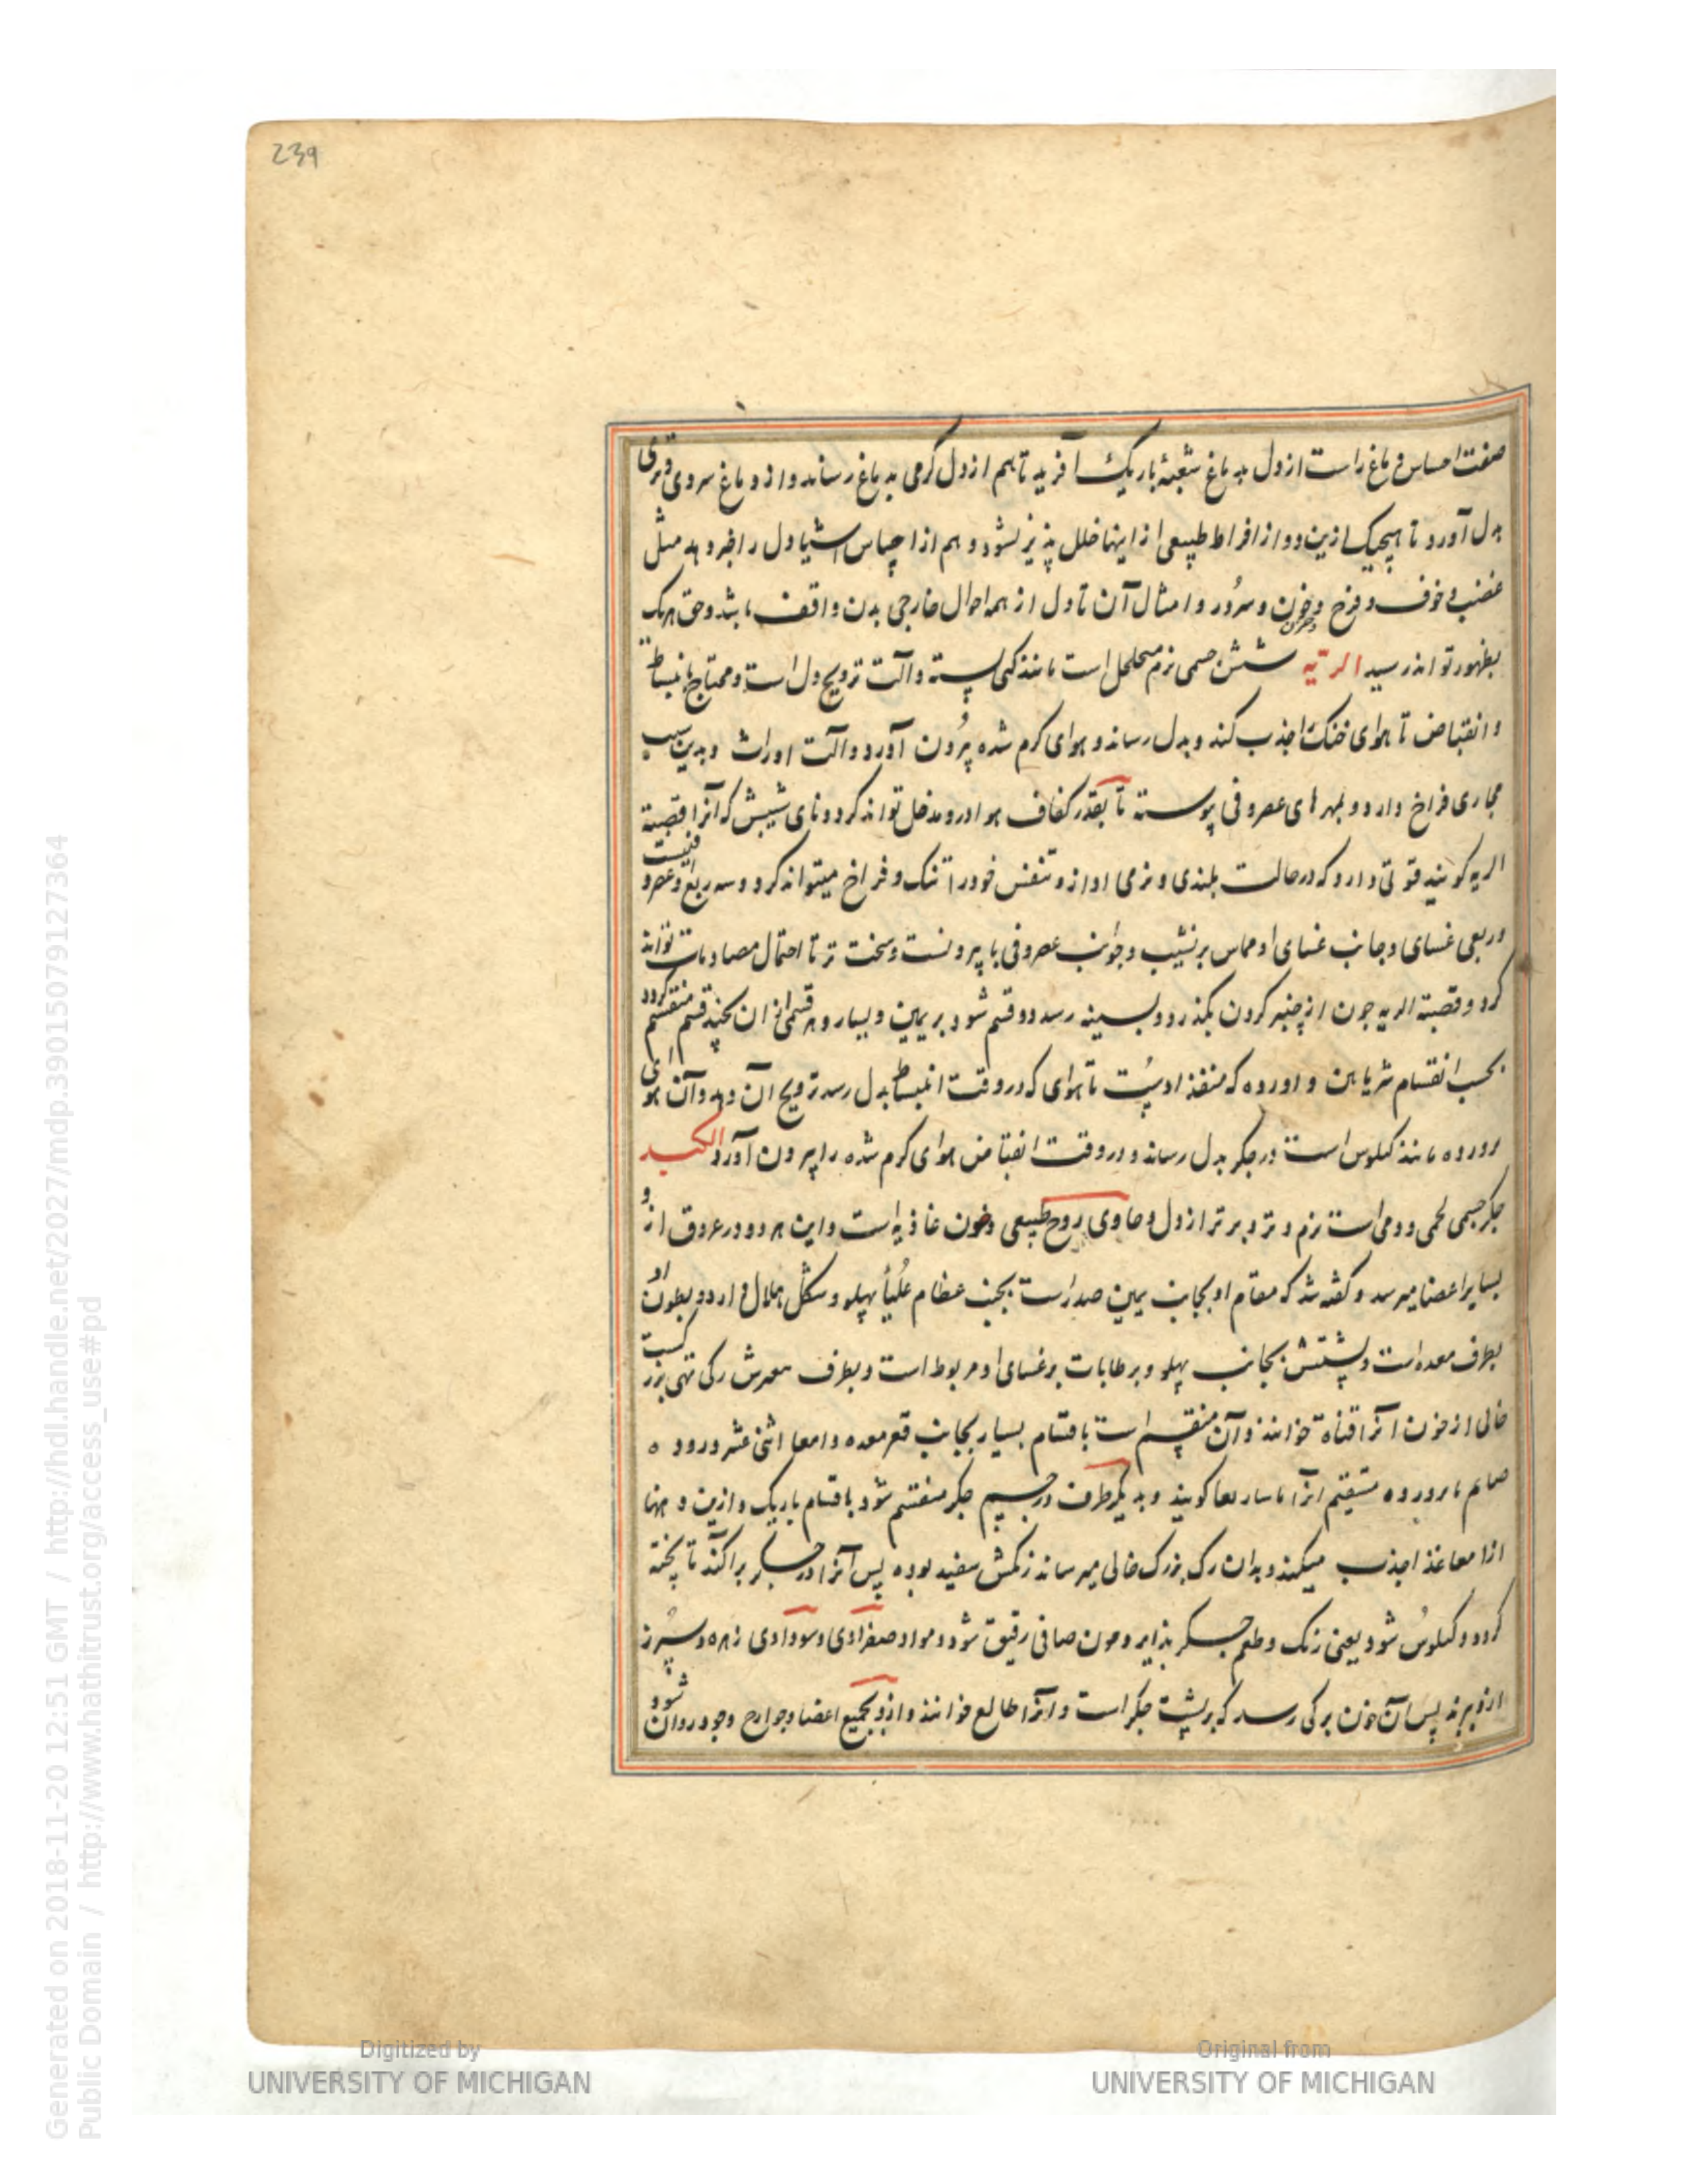 239
صفت احساس دماغ راست از دل بدماغ شعبهٔ باریک آفرید تا هم از دل گرمی بدماغ رساند و از دماغ سردی و تری
بدل آورد تا هیچیک ازین دو از افراط طبیعی از اینها خلل پذیر نشود و هم از احساس اشیا دل را خبر دهد مثل
غضب و خوف و فرح و حزن و سرور و امثال آن تا دل از همه احوال خارجی بدن واقف باشد و حق هریک
بظهور تواند رسید الریه شش جسمی نرم متخلخل است مانند کفی بسته و آلت ترویح دل است و محتاج بانبساط
و انقباض تا هوای خنک را جذب کند و بدل رساند و هوای کرم شده بیرون آورد و آلت اوراست و بدین سبب
مجاری فراخ دارد و بمهرهای غضروفی پیوسته تا بقدر کفاف هوا درو مدخل تواند کرد و نای شش که آنرا قصبة
الریه کویند قوتی دارد که در حالت بلندی و نرمی آواز و تنفس خود را تنک و فراخ میتواند کرد و سه ربع او غضروفیست
و ربعی غسای و جانب غسای او مماس بر نشیب و جوانب غضروفی با بیرونست و سخت تر تا احتمال مصادمات تواند
کرد و قصبة الریه چون از چنبر کردن بگذرد و بسینه رسد دو قسم شود بر یمین و یسار و هر قسمی از ان بچند قسم منقسم کردد
بحسب انقسام شریانین و اورده که منفذ اوست تا هوای که در وقت انبساط بدل رسد ترویح آن دهد و آن هوای
روروده مانند کیلوس است در جکر بدل رساند و در وقت انقباض هوای کرم شده را بیرون آورد الکبد
جکر جسمی لحمی و دمی است نرم و تر و برتر از دل و حاوی روح طبیعی و خون غاذیه است و این هر دو در عروق ازو
بسایر اعضا میرسد و کفته شد که مقام او بجانب یمین صدر است بجنب عظام علیا پهلو و شکل هلال دارد و بطون او
بطرف معده است و پشتش بجانب پهلو و بر طابات بر غسای او مربوط است و بطرف مقعرش رکی تهی بزرکست
خالی از خون آنرا قناة خوانند و آن منقسم است باقسام بسیار بجانب قعر معده و امعا اثنی عشر و روده
صایم تا بروروده مستقیم آنرا ماساریقا کویند و بدیکر طرف در جسم جکر منقسم شود باقسام باریک و ازین دهنها
از امعا غذا جذب میکند و بدان رک بزرک خالی میرساند رنکش سفید بوده پس آنرا در جکر پراکند تا پخته
کردد و کیلوس شود یعنی رنک و طعم جکر پذیرد و خون صافی رقیق شود و مواد صفراوی و سوداوی زهره و سپرز
ازو برند پس آن خون برکی رسد که بر پشت جکر است و آنرا طالع خوانند و ازو بجمیع اعضا و جوارح وجود روان شود
Generated on 2018-11-20 12:51 GMT / http://hdl.handle.net/2027/mdp.39015079127364
Public Domain / http://www.hathitrust.org/access_use#pd
Digitized by
UNIVERSITY OF MICHIGAN
Original from
UNIVERSITY OF MICHIGAN